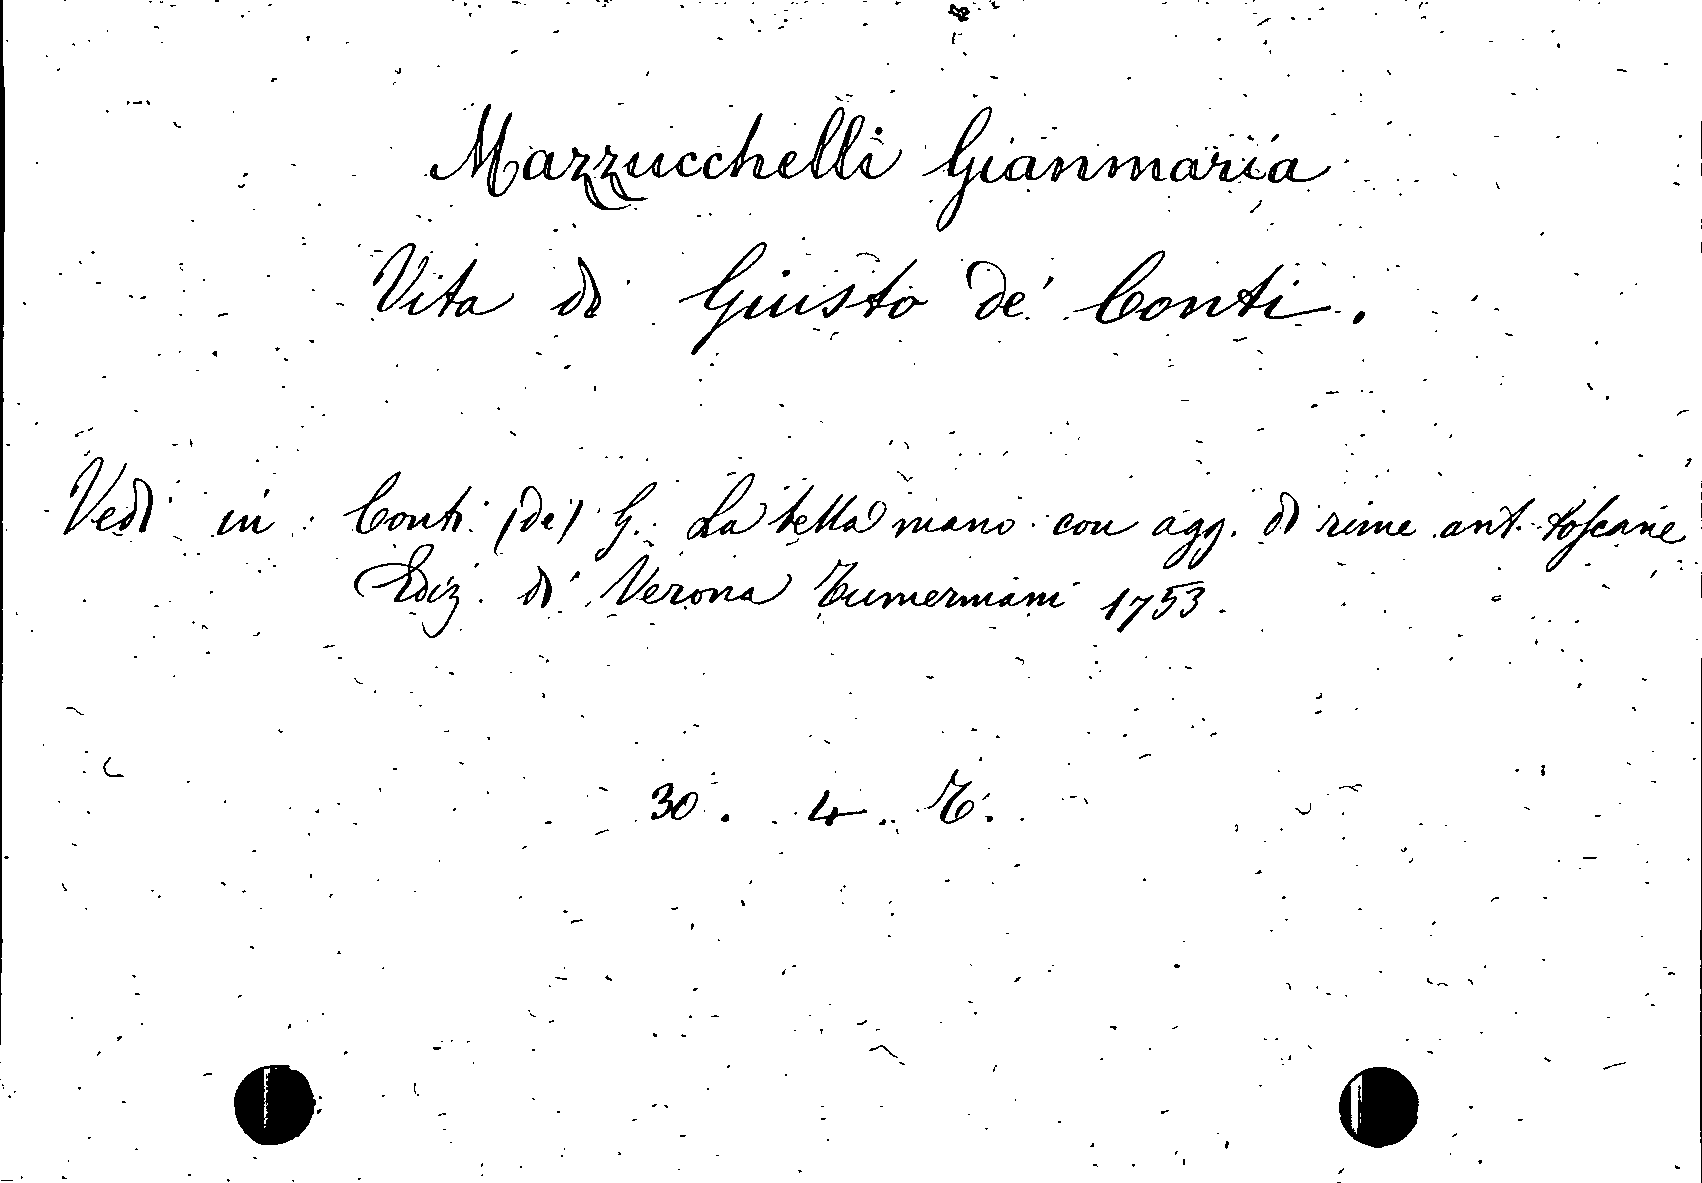 Mazzucchelli Gianmaria
Vita di Giusto de' Conti.
Vedi in: Conti (de) G. La bella mano con agg. di rime ant. toscane
Ediz. di Verona Tumermani 1753.
30. 4. T.